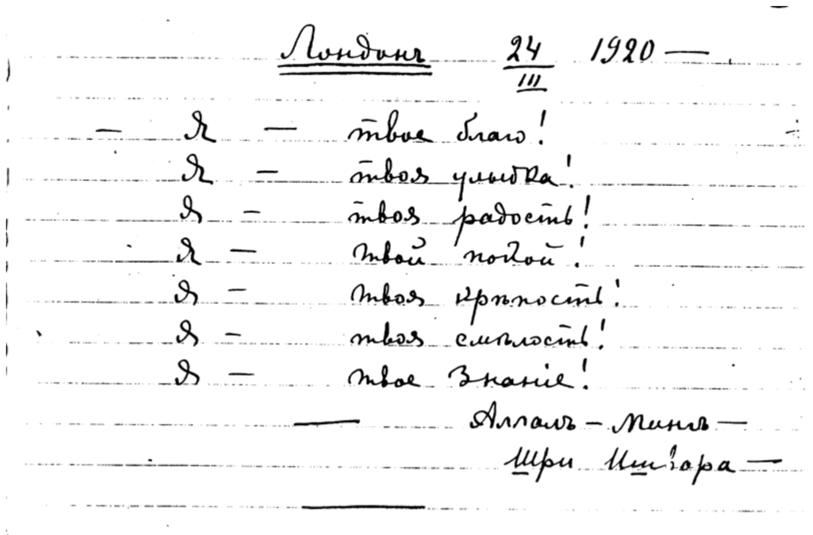 Лондонъ 24/III 1920 —
— Я — твое благо!
Я — твоя улыбка!
Я — твоя радость!
Я — твой покой!
Я — твоя крѣпость!
Я — твоя смѣлость!
Я — твое Знаніе!
Аллалъ – Мингъ —
Шри Ишвара —